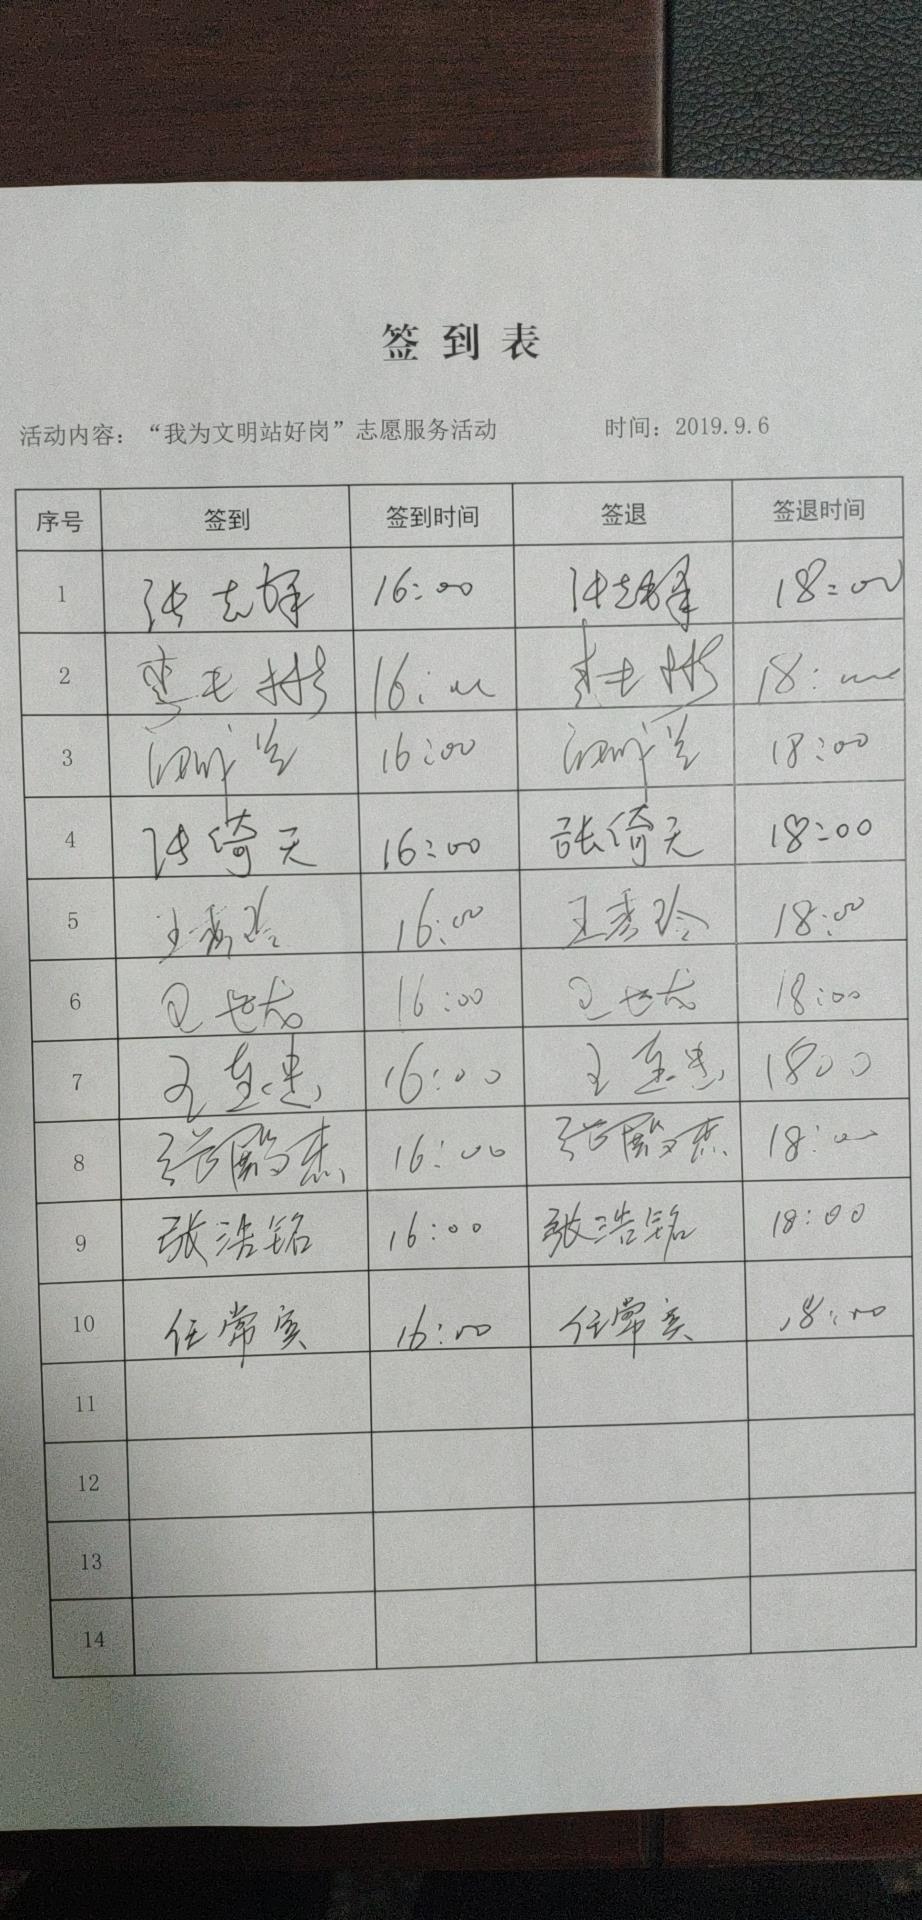 签到表
活动内容：“我为文明站好岗”志愿服务活动 时间：2019.9.6
序号 签到 签到时间 签退 签退时间
1 张志锋 16:00 张志锋 18:00
2 16:00 18:00
3 16:00 18:00
4 张倚天 16:00 张倚天 18:00
5 王秀玲 16:00 王秀玲 18:00
6 16:00 18:00
7 16:00 1800
8 16:00 18:00
9 张浩铭 16:00 张浩铭 18:00
10 任常实 16:00 任常实 18:00
11
12
13
14